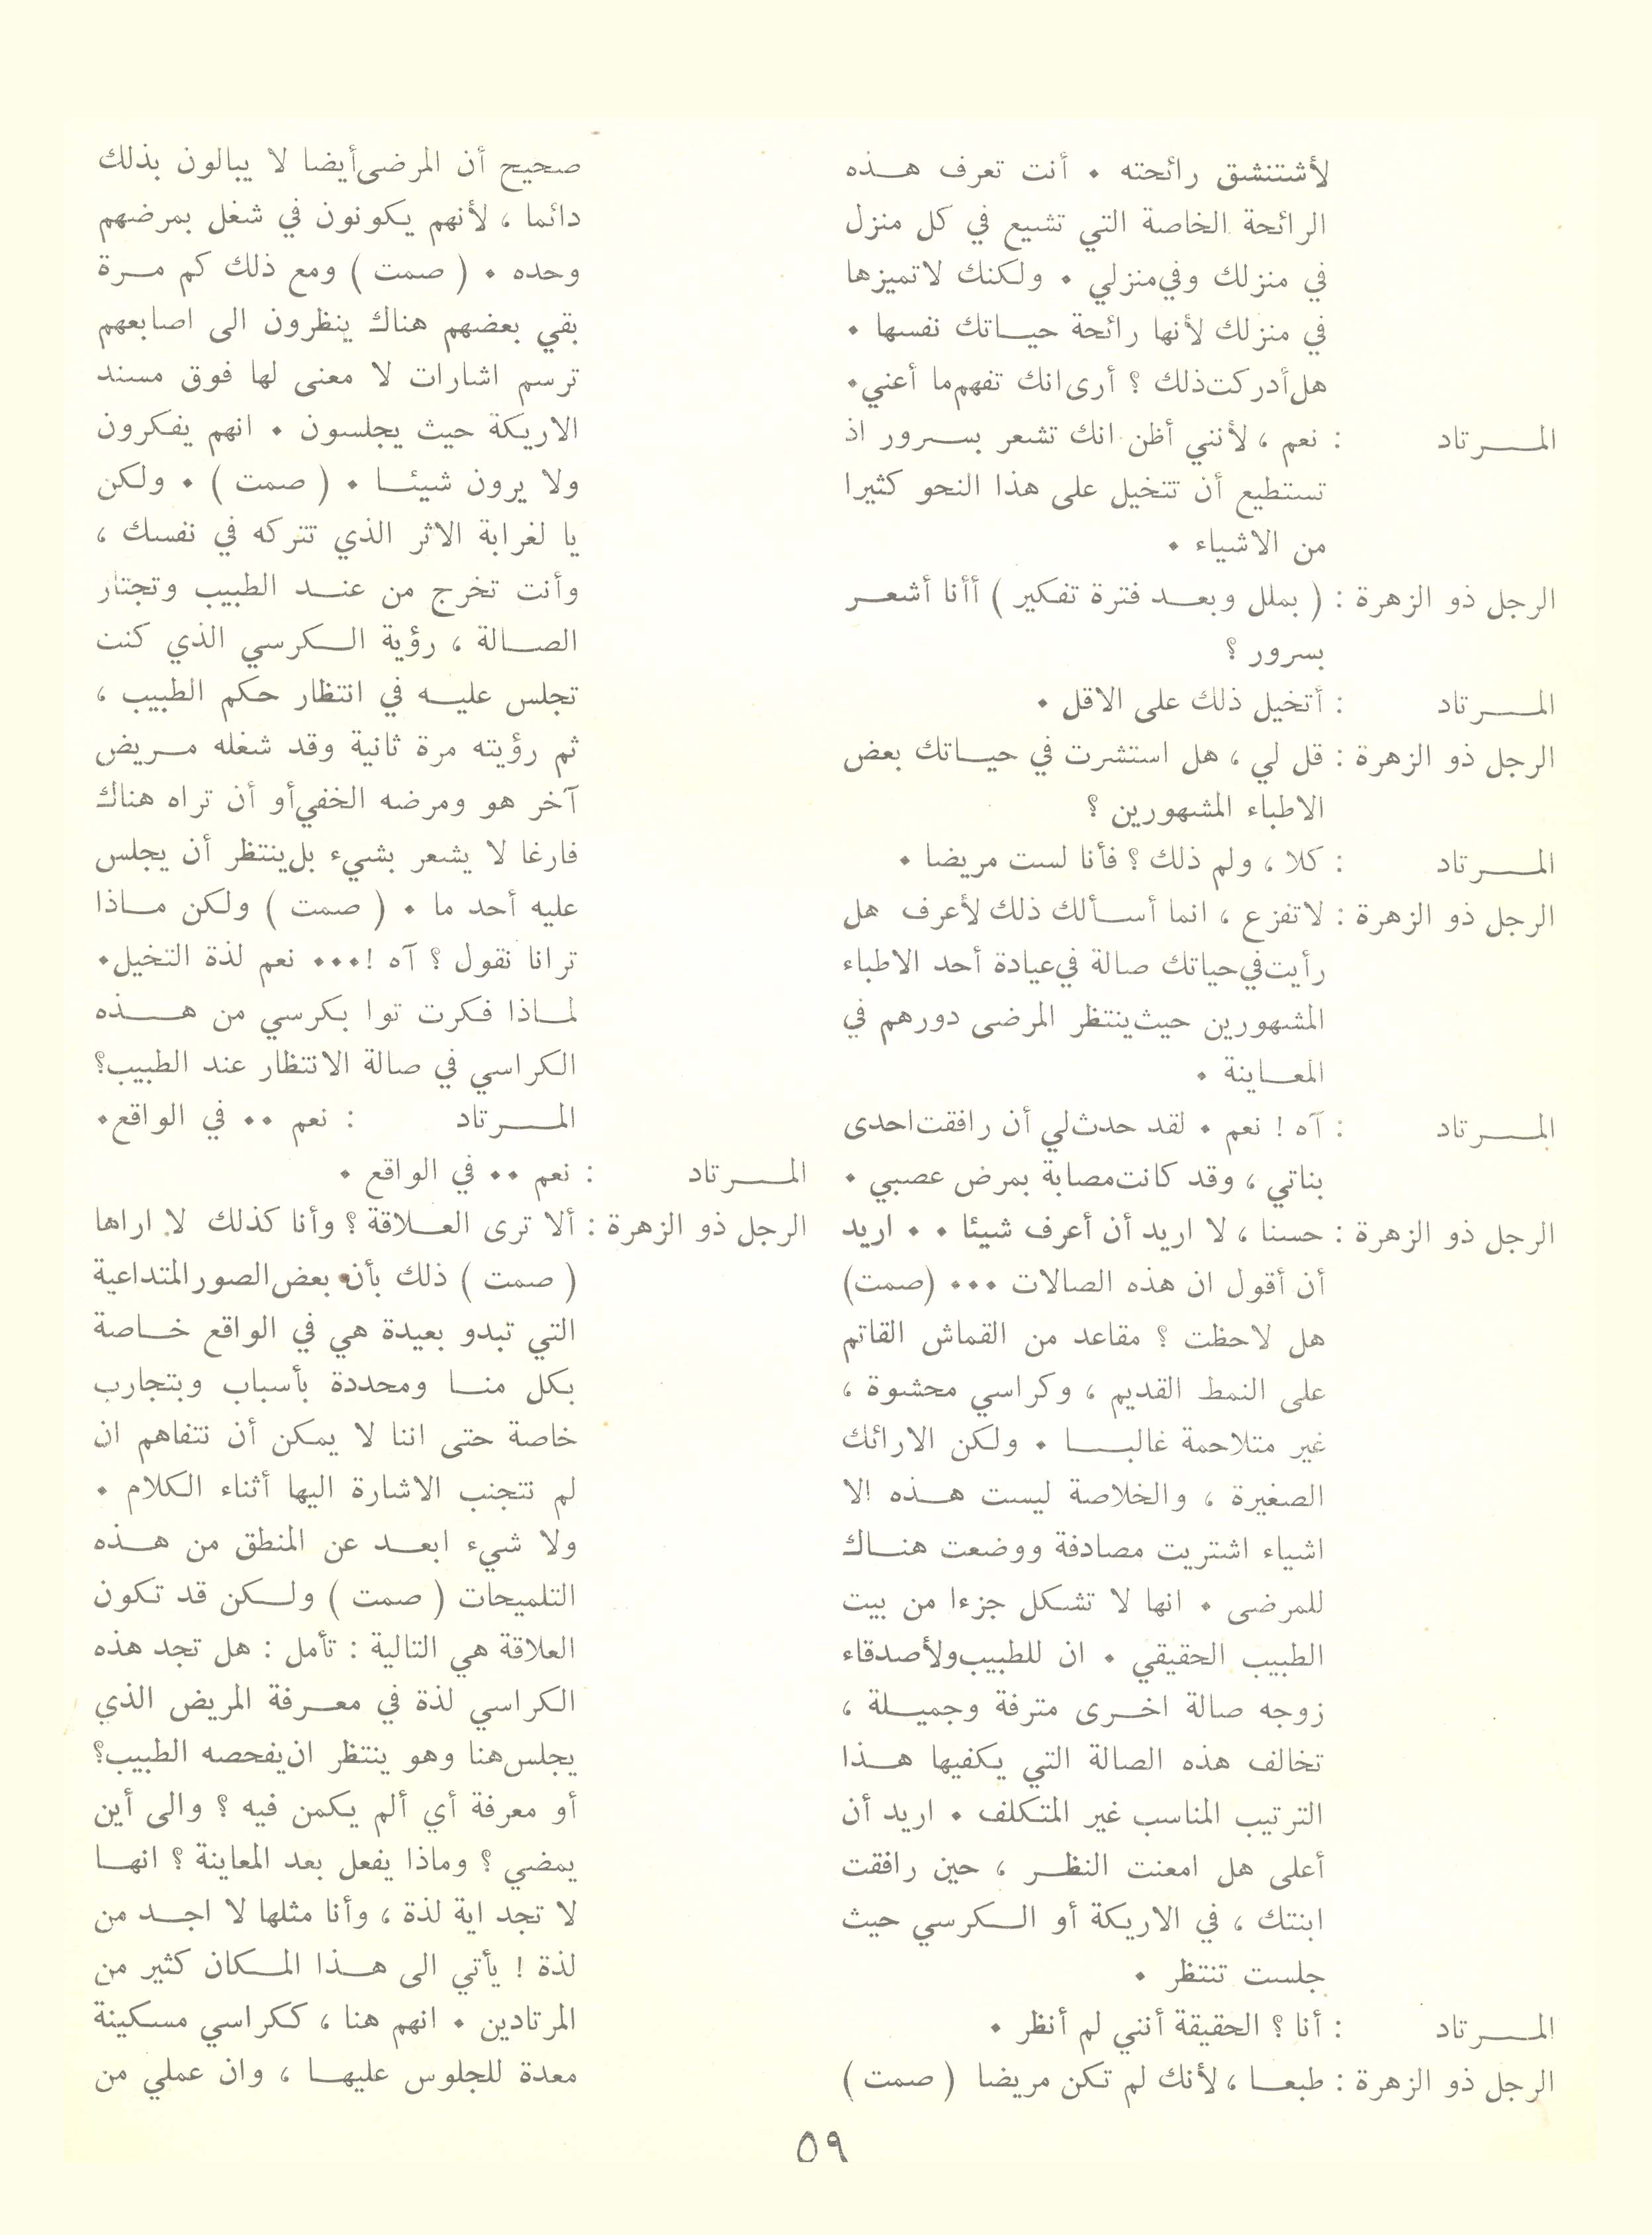 لأشتنشق رائحته ٠ أنت تعرف هــذه
الرائحة الخاصة التي تشيع في كل منزل
في منزلك وفي منزلي ٠ ولكنك لاتميزها
في منزلك لأنها رائحة حيــاتك نفسها ٠
هل أدركت ذلك ؟ أرى انك تفهم ما أعني٠
المــــرتاد : نعم ، لأنني أظن انك تشعر بســرور اذ
تستطيع أن تتخيل على هذا النحو كثيرا
من الاشياء ٠
الرجل ذو الزهرة : ( بملل وبعــد فترة تفكير ) أأنا أشعــر
بسرور ؟
المــــرتاد : أتخيل ذلك على الاقل ٠
الرجل ذو الزهرة : قل لي ، هل استشرت في حيــاتك بعض
الاطباء المشهورين ؟
المــــرتاد : كلا ، ولم ذلك ؟ فأنا لست مريضا ٠
الرجل ذو الزهرة : لاتفزع ، انما أســألك ذلك لأعرف هل
رأيت في حياتك صالة في عيادة أحد الاطباء
المشهورين حيث ينتظر المرضى دورهم في
المعــاينة ٠
المــــرتاد : آه ! نعم ٠ لقد حدث لي أن رافقت احدى
بناتي ، وقد كانت مصابة بمرض عصبي ٠
الرجل ذو الزهرة : حسنا ، لا اريد أن أعرف شيئا ٠ ٠ اريد
أن أقول ان هذه الصالات ٠٠٠ (صمت)
هل لاحظت ؟ مقاعد من القماش القاتم
على النمط القديم ، وكراسي محشوة ،
غير متلاحمة غالبـــا ٠ ولكن الارائك
الصغيرة ، والخلاصة ليست هــذه الا
اشياء اشتريت مصادفة ووضعت هنــاك
للمرضى ٠ انها لا تشكل جزءا من بيت
الطبيب الحقيقي ٠ ان للطبيب ولأصدقاء
زوجه صالة اخــرى مترفة وجميــلة ،
تخالف هذه الصالة التي يكفيها هــذا
الترتيب المناسب غير المتكلف ٠ اريد أن
أعلى هل امعنت النظــر ، حين رافقت
ابنتك ، في الاريكة أو الــكرسي حيث
جلست تنتظر ٠
المــــرتاد : أنا ؟ الحقيقة أنني لم أنظر ٠
الرجل ذو الزهرة : طبعــا ، لأنك لم تكن مريضا ( صمت )
صحيح أن المرضى أيضا لا يبالون بذلك
دائما ، لأنهم يكونون في شغل بمرضهم
وحده ٠ ( صمت ) ومع ذلك كم مــرة
بقي بعضهم هناك ينظرون الى اصابعهم
ترسم اشارات لا معنى لها فوق مسند
الاريكة حيث يجلسون ٠ انهم يفكرون
ولا يرون شيئــا ٠ ( صمت ) ٠ ولكن
يا لغرابة الاثر الذي تتركه في نفسك ،
وأنت تخرج من عنــد الطبيب وتجتاز
الصــالة ، رؤية الــكرسي الذي كنت
تجلس عليــه في انتظار حكم الطبيب ،
ثم رؤيته مرة ثانية وقد شغله مــريض
آخر هو ومرضه الخفي أو أن تراه هناك
فارغا لا يشعر بشيء بل ينتظر أن يجلس
عليه أحد ما ٠ ( صمت ) ولكن مــاذا
ترانا نقول ؟ آه !٠٠٠ نعم لذة التخيل٠
لمــاذا فكرت توا بكرسي من هــــذه
الكراسي في صالة الانتظار عند الطبيب؟
المــــرتاد : نعم ٠٠ في الواقع٠
المــــرتاد : نعم ٠٠ في الواقع ٠
الرجل ذو الزهرة : ألا ترى العــلاقة ؟ وأنا كذلك لا اراها
( صمت ) ذلك بأن بعض الصور المتداعية
التي تبدو بعيدة هي في الواقع خــاصة
بكل منــا ومحددة بأسباب وبتجارب
خاصة حتى اننا لا يمكن أن نتفاهم ان
لم نتجنب الاشارة اليها أثناء الكلام ٠
ولا شيء ابعــد عن المنطق من هــذه
التلميحات ( صمت ) ولــكن قد تكون
العلاقة هي التالية : تأمل : هل تجد هذه
الكراسي لذة في معــرفة المريض الذي
يجلس هنا وهو ينتظر ان يفحصه الطبيب؟
أو معرفة أي ألم يكمن فيه ؟ والى أين
يمضي ؟ وماذا يفعل بعد المعاينة ؟ انهــا
لا تجد اية لذة ، وأنا مثلها لا اجــد من
لذة ! يأتي الى هــذا المــكان كثير من
المرتادين ٠ انهم هنا ، ككراسي مسكينة
معدة للجلوس عليهــا ، وان عملي من
٥٩